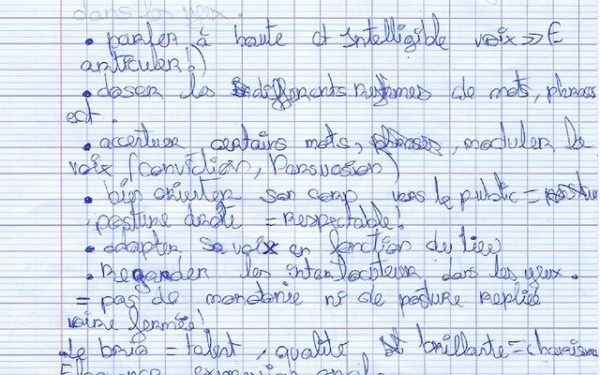 dans les yeux.
• parler à haute et Intelligible voix => (
articuler.)
• doser les différents Rythmes de mots, phrases
ect.
• accentuer certains mots, phrases, moduler la
voix (conviction, Persuasion)
• bien orienter son corp vers le public =
posture droite = respectable!
• adapter sa voix en fonction du lieu
• Regarder les interlocuteur dans les yeux.
= pas de monotonie ni de posture replié
voire fermée!
Le brio = talent, qualité brillante = charisme
Elegance